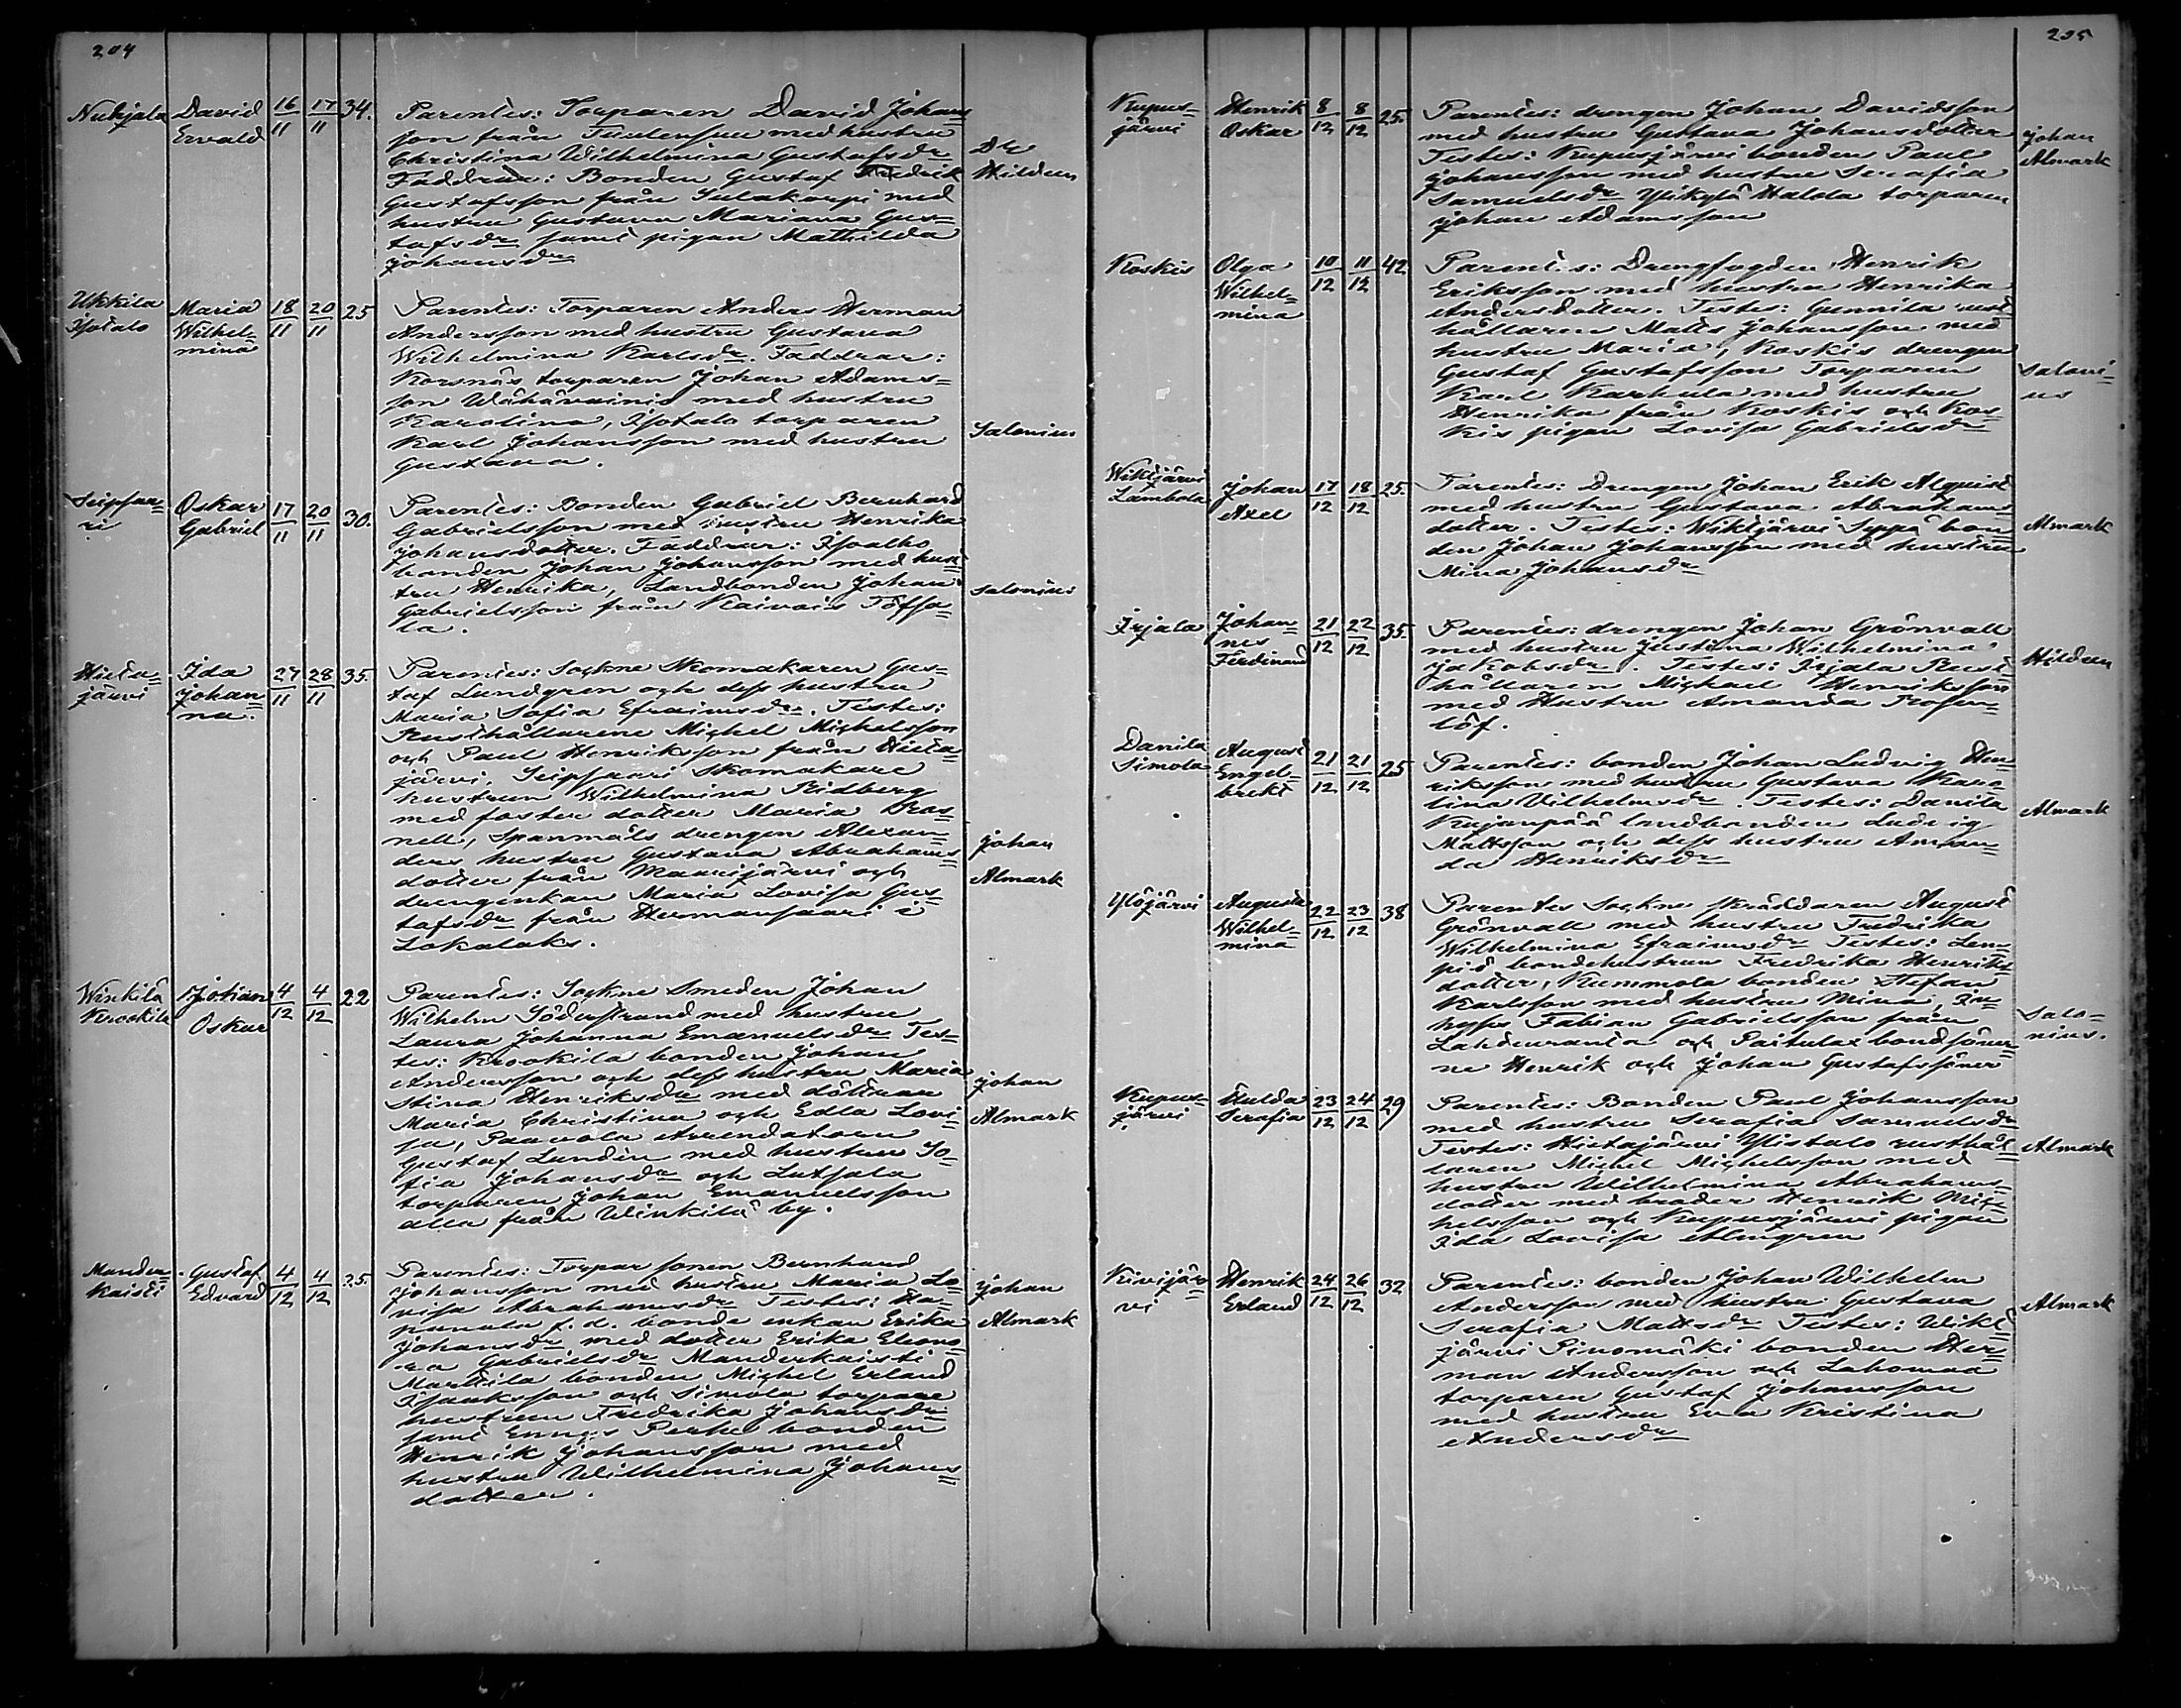 204
Nuhjala David 16/11 17/11 34. Parentes: Torparen David Johans
Ervald son från med hustru
Christina Wilhelmina Gustafsdr Dr
Faddrar: Bonden Gustaf Fredrik Hildeen
Gustafsson från Sulakorpi med
hustru Gustava Mariana Gus=
tafsdr samt pigan Mathilda
Johansdr
Ukkila Maria 18/11 20/11 25 Parentes: Torparen Anders Herman
Isotalo Wilhel= Andersson med hustru Gustava
mina Wilhelmina Karlsdr. Faddrar:
Korsnäs torparen Johan Adams=
son Wähävainio med hustru
Karolina, Isotalo torparen
Karl Johansson med hustru Salonius
Gustava.
Seipsaa= Oskar 17/11 20/11 30. Parentes: Bonden Gabriel Bernhard
ri Gabriel Gabrielsson med hustru Henrika
Johansdotter. Faddrar: Isoalho
bonden Johan Johansson med hus=
tru Henrika, Landbonden Johan Salonius
Gabrielsson från Kaivois Töfsa=
la.
Hieta= Ida 27/11 28/11 35. Parentes: Sockne Skomakaren Gus=
järvi Johan= taf Lundgren och dess hustru
na. Maria Sofia Efraimsdr. Testes:
Rusthållarene Michel Michelsson
och Paul Henriksson från Hieta
järvi, Seipsaari Skomakare
hustrun Wilhelmina Ridberg
med foster dotter Maria Ros=
nell, Spanmåls drengen Alexan= Johan
ders hustru Gustava Abrahams=
dotter från Maarijärvi och Almark
drengenkan Maria Lovisa Gus=
tafsdr från Hermansaari i
Lokalaks.
Winkilä Johan 4/12 4/12 22 Parentes: Sockne Smeden Johan
Krookila Oskar Wilhelm Söderstrand med hustru
Laura Johanna Emanuelsdr Tes=
tes: Krookila bonden Johan
Andersson och dess hustru Maria Johan
Stina Henriksdr med döttrar
Maria Christina och Edla Lovi= Almark
sa, Paavola Arrendatorn
Gustaf Lundén med hustru So=
fia Johansdr och Lutsala
torparen Johan Emanuelsson
alla från Winkilä by.
Mander= Gustaf 4/12 4/12 25. Parentes: Torpar sonen Bernhard
kaisti Edvard Johansson med hustru Maria Lo= Johan
visa Abrahamsdr Testes: Ha=
panala f. d. bonde enkan Erika Almark
Johansdr med dotter Erika Eleono=
ra Gabrielsdr Manderkaisti
Markila bonden Michel Erland
Isaaksson och Simola torpare
hustrun Fredrika Johansdr
samt Ennys Perho bonden
Henrik Johansson med
hustru Wilhelmina Johans=
dotter.
205
Kupus= Henrik 8/12 8/12 25. Parentes: drengen Johan Davidsson
järvi Oskar med hustru Gustava Johansdotter Johan
Testes: Kupusjärvi bonden Paul Almark
Johansson med hustru Serafia
Samuelsdr Ylikylä Halola torparen
Johan Adamsson
Koskis Olga 10/12 11/12 42 Parentes: Drengfogden Henrik
Wilhel= Eriksson med hustru Henrika
mina Andersdotter. Testes: Gunnila rust
hållaren Matts Johansson med
hustru Maria, Koskis drengen
Gustaf Gustafsson Torparen Saloni=
Karl Karhula med hustru us
Henrika från Koskis och Kos=
kis pigan Lovisa Gabrielsdr
Wiktjärvi Johan 17/12 18/12 25. Parentes: Drengen Johan Erik Alquist
Lambola Axel med hustru Gustava Abrahams
dotter. Testes: Wiktjärvi Seppä bon= Almark
den Johan Johansson med hustru
Mina Johansdr
Irjala Johan= 21/12 22/12 35. Parentes: drengen Johan Grönvall
nes med hustru Justina Wilhelmina
Ferdinand Jakobsdr. Testes: Irjala Rust Hildeen
hållaren Michael Henriksson
med Hustru Amanda Rosen=
löf.
Danila August 21/12 21/12 25 Parentes: bonden Johan Ludvig Hen=
Simola Engel= riksson med hustru Gustava Karo=
brekt lina Vilhelmsdr. Testes: Danila
Kujanpää landbonden Ludvig Almark
Mattsson och dess hustru Aman=
da Henriksdr
Ylöjärvi Augusta 22/12 23/12 38 Parentes Sockne skräddaren August
Wilhel= Grönvall med hustru Fredrika
mina Wilhelmina Efraimsdr Testes: Lem=
piö bondehustrun Fredrika Henriks=
dotter, Kummola bonden Stefan
Karlsson med hustru Mina, In= Salo=
hyss Fabian Gabrielsson från nius.
Lahdenranta och Paitula bondsöner=
ne Henrik och Johan Gustafssöner
Kupus= Hulda 23/12 24/12 29 Parentes: Bonden Paul Johansson
järvi Serafia med hustru Serafia Samuelsdr
Testes: Hietajärvi Ylistalo rusthål= Almark
laren Michel Michelsson med
hustru Wilhelmina Abrahams=
dotter med broder Henrik Mic=
helsson och Kupusjärvi pigan
Ida Lovisa Almgren
Kivijär= Henrik 24/12 26/12 32 Parentes: bonden Johan Wilhelm
vi Erland Andersson med hustru Gustava Almark
Serafia Mattsdr Testes: Wikt=
järvi Pinomäki bonden Her=
man Andersson och Lahomaa
torparen Gustaf Johansson
med hustru Eva Kristina
Andersdr